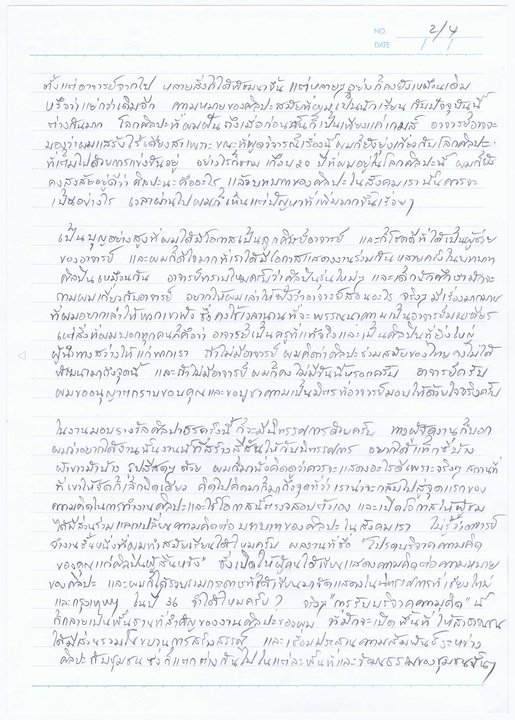 NO. 2/4
DATE
ตั้งแต่อาจารย์จากไป หลายสิ่งก็ได้พัฒนาขึ้น แต่หลายๆ อย่างก็คงยังเหมือนเดิม
หรือว่าแย่กว่าเดิมอีก ความหมายของศิลปะสมัยที่ผมเป็นนักเรียน กับปัจจุบันนี้
ต่างกันมาก โลกศิลปะที่ผมฝันถึงเมื่อก่อนนั้นก็เป็นเพียงแค่เกมส์ อาจารย์อาจจะ
มองว่าผมแสร้งไร้เดียงสาเพราะขณะที่พูดวิจารณ์เรื่องนี้ ผมก็ยังยุ่งเกี่ยวกับโลกศิลปะ
ที่เต็มไปด้วยการแข่งขันอยู่ อย่างไรก็ตาม เกือบ ๒๐ ปีที่ผมอยู่ในโลกศิลปะนี้ ผมก็ยัง
คงสงสัยอยู่ดีว่า ศิลปะนะคืออะไร แล้วบทบาทของศิลปะในสังคมเรานั้นควรจะ
เป็นอย่างไร เวลาผ่านไปผมก็เห็นแต่ปัญหาที่เพิ่มมากขึ้นเรื่อยๆ
เป็นบุญอย่างสูงที่ผมได้มีโอกาสเป็นลูกศิษย์อาจารย์ และก็โชคดีที่ได้เป็นผู้ช่วย
ของอาจารย์ และผมก็ดีใจมากที่เราได้มีโอกาสแสดงงานร่วมกันหลายครั้งในบทบาท
ศิลปินเหมือนกัน อาจารย์ทราบไหมครับว่าศิลปินรุ่นใหม่ๆ และเด็กนักศึกษามักจะ
ถามผมเกี่ยวกับอาจารย์ อยากให้ผมเล่าให้ฟังว่าอาจารย์สอนอะไร จริงๆ มีเรื่องมากมาย
ที่ผมอยากเล่าให้พวกเขาฟัง ซึ่งคงใช้เวลานานที่จะพรรณนาความเป็นอาจารย์มณเฑียร
แต่สิ่งที่ผมบอกทุกคนก็คือว่า อาจารย์เป็นครูที่แท้จริงและเป็นศิลปินที่ยิ่งใหญ่
ผู้นำทางสว่างให้แก่พวกเรา ถ้าไม่มีอาจารย์ ผมคิดว่าศิลปะร่วมสมัยของไทยคงไม่ได้
พัฒนามาถึงจุดนี้ และถ้าไม่มีอาจารย์ ผมก็คงไม่มีวันนี้หรอกครับ อาจารย์ครับ
ผมขออนุญาตกราบขอบคุณ และขอบูชาความเป็นมิตรที่อาจารย์มอบให้ด้วยใจจริงครับ
ในงานมอบรางวัลศิลปาธรครั้งนี้ ก็จะมีนิทรรศการด้วยครับ ทางผู้จัดงานก็บอก
ผมว่าอยากได้งานนั้นงานนี้ที่สร้างสีสันให้กับนิทรรศการ อยากได้แท็กซี่บ้าง
ผ้าขาวม้าบ้าง รูปสีสดๆ ด้วย ผมก็มานั่งคิดดูว่าควรจะแสดงอะไรดีเพราะจริงๆ สถานที่
ที่เขาให้จัดก็เล็กนิดเดียว คิดไปคิดมาก็มาถึงจุดที่ว่า เราน่าจะกลับไปสู่จุดแรกของ
ความคิดในการทำงานศิลปะและใช้โอกาสนี้ตรวจสอบตัวเอง และเปิดโอกาสให้ผู้ชม
ได้มีส่วนร่วมแลกเปลี่ยนความคิดต่อบทบาทของศิลปะในสังคมเรา ไม่รู้ว่าอาจารย์
จำงานชิ้นหนึ่งที่ผมทำสมัยเรียนได้ไหมครับ ผลงานที่ชื่อ "โปรดบริจาคความคิด
ของคุณแก่ศิลปินผู้สิ้นหวัง" ซึ่งเปิดให้ผู้คนได้เขียนแสดงความคิดต่อความหมาย
ของศิลปะ และผมก็ได้รวบรวมกระดาษที่ได้เขียนมาจัดแสดงในนิทรรศการที่เชียงใหม่
และกรุงเทพฯ ในปี 36 จำได้ไหมครับ? จริงๆ "การรับบริจาคความคิด" นี้
ก็กลายเป็นพื้นฐานที่สำคัญของงานศิลปะของผม ที่มักจะเปิดพื้นที่ให้สาธารณชน
ได้มีส่วนร่วมในขบวนการสร้างสรรค์ และเชื่อมประสานความสัมพันธ์ระหว่าง
ศิลปะกับชุมชน ซึ่งก็แตกต่างกันไปในแต่ละพื้นที่และวัฒนธรรมของชุมชนนั้นๆ